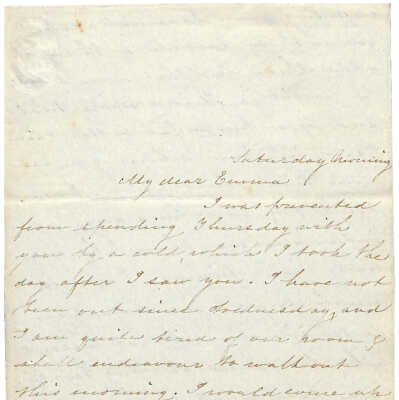 Saturday Morning
My dear Emma
I was prevented
from spending Thursday with
you by a cold which I took the
day after I saw you. I have not
been out since Wednesday, and
I am quite tired of our room &
shall endeavour to walk out
this morning. I would come up